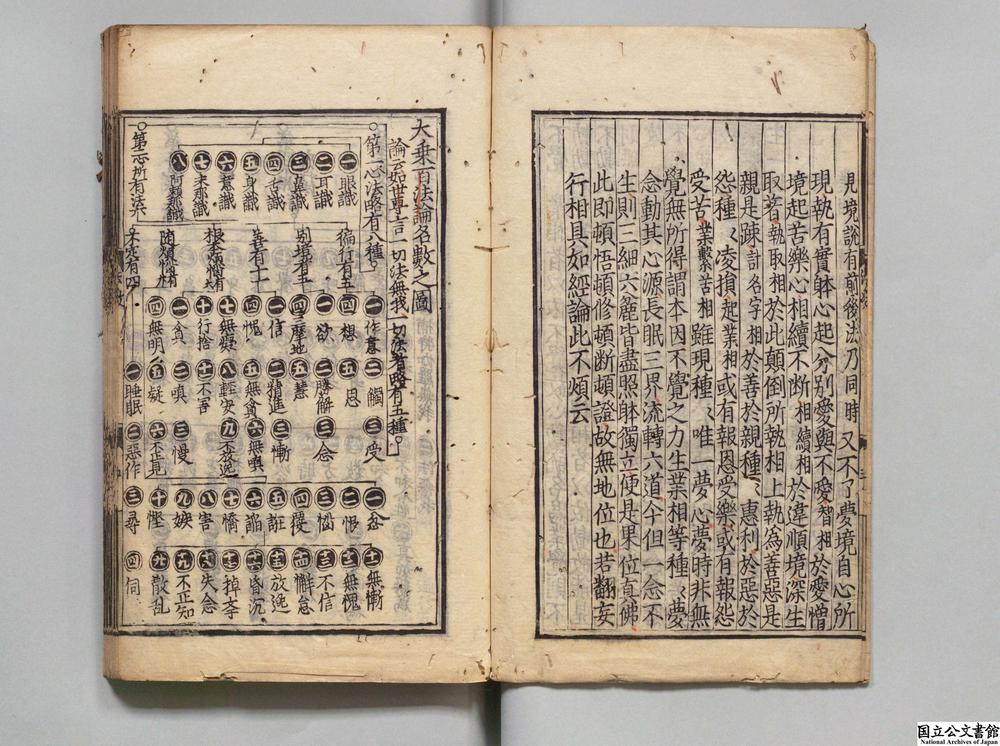 見境說有前後法乃同時又不了夢境自心所
現執有實躰心起分別愛與不愛智相於愛憎
境起苦樂心相續不断相續相於違順境深生
取著執取相於此顛倒所執相上執為善惡是
親是踈計名字相於善於親種〻惠利於惡於
怨種〻凌損起業相或有報恩受樂或有報怨
受苦業繫苦相雖現種〻唯一夢心夢時非無
覺無所得謂本因不覺之力生業相等種〻夢
念動其心源長眠三界流轉六道今但一念不
生則三細六麄皆盡照躰獨立便是果位真佛
此即頓悟頓修頓断頓證故無地位也若翻妄
行相具如經論此不煩云
大乘百法論名數之圖
論云如世尊言一切法無我一切法者略有五種。
○第一心法略有八種。
一眼識
二耳識
三鼻識
四舌識
五身識
六意識
七末那識
八阿賴耶識
○第二心所有法六
徧行有五
別境有五
善有十一
根本煩惱有六
随煩惱有二十
不定有四
一作意 二觸 三受
四想 五思
一欲 二勝解 三念
四三摩地 五慧
一信 二精進 三慚
四愧 五無貪 六無嗔
七無癡 八輕安 九不放逸
十行捨 十一不害
一貪 二嗔 三慢
四無明 五疑 六不正見
一忿 十一無慚
二恨 十二無愧
三惱 十三不信
四覆 十四懈怠
五誑 十五放逸
六諂 十六昏沉
七憍 十七掉舉
八害 十八失念
九嫉 十九不正知
十慳 二十散乱
一睡眠 二惡作 三尋 四伺
国立公文書館
National Archives of Japan